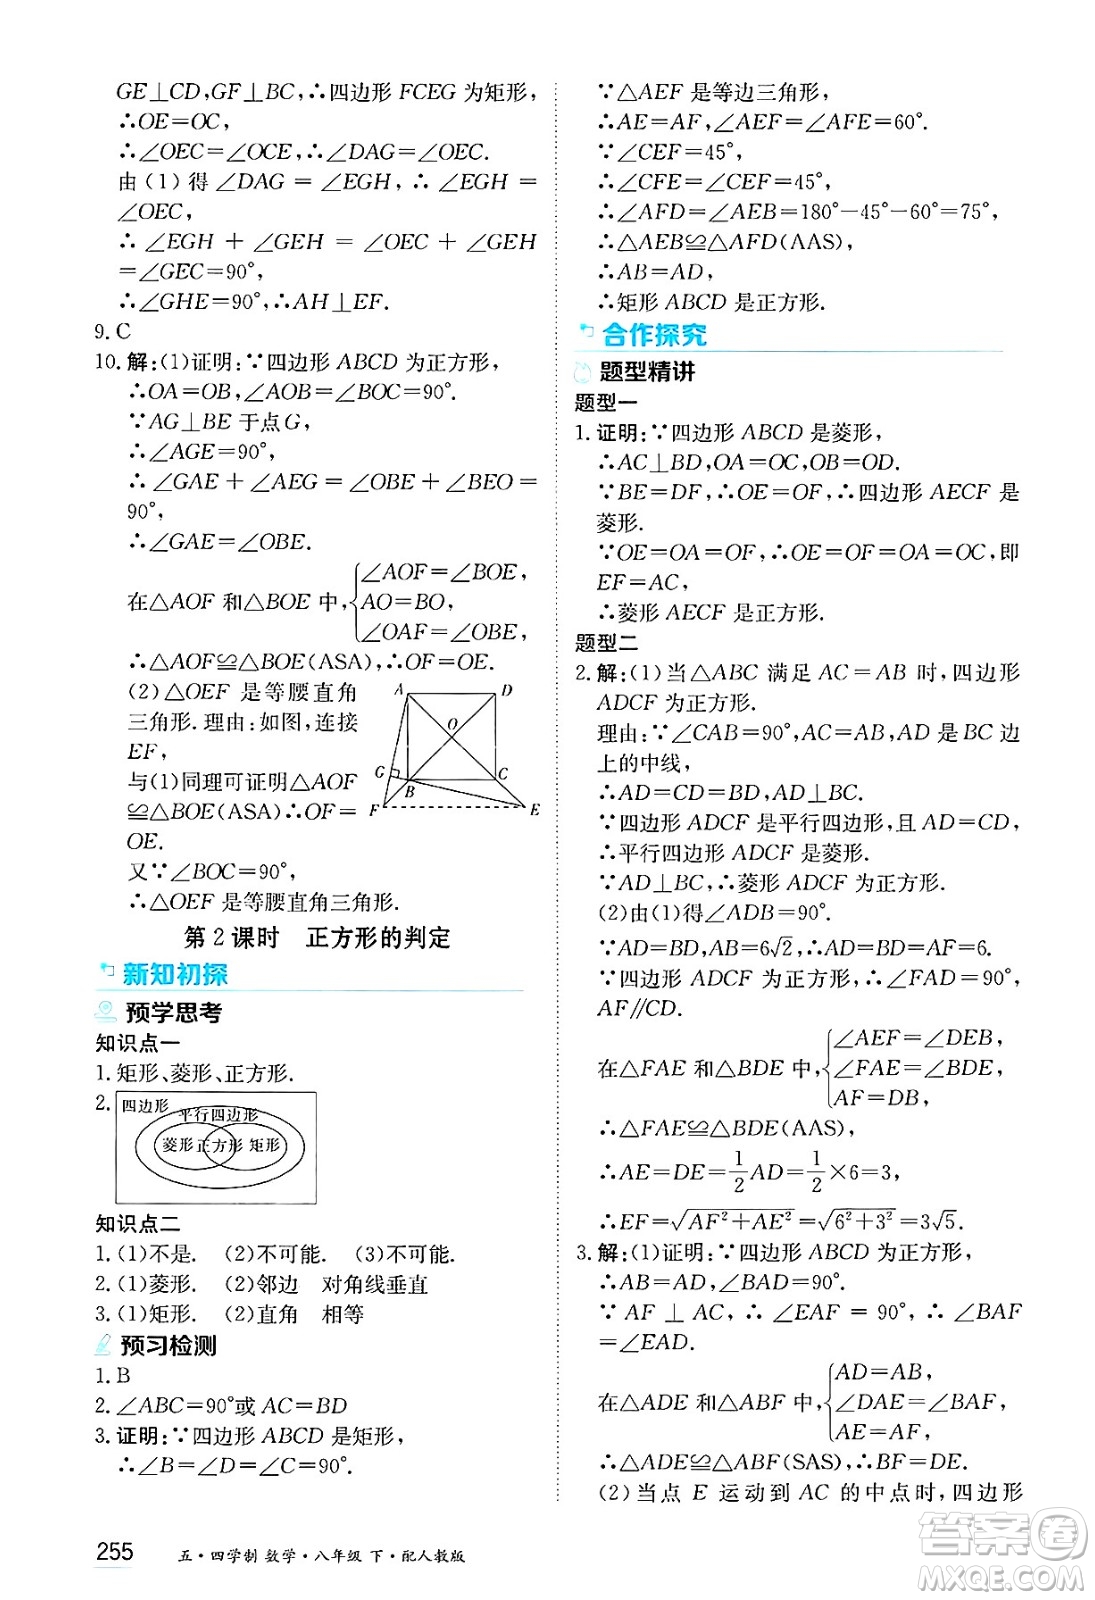 GE⊥CD,GF⊥BC,∴四边形 FCEG 为矩形,
∴OE=OC,
∴∠OEC=∠OCE,∴∠DAG=∠OEC.
由(1)得∠DAG=∠EGH,∴∠EGH=
∠OEC,
∴∠EGH+∠GEH=∠OEC+∠GEH
=∠GEC=90°,
∴∠GHE=90°,∴AH⊥EF.
9. C
10. 解:(1)证明:∵四边形 ABCD 为正方形,
∴OA=OB,∠AOB=∠BOC=90°.
∵AG⊥BE 于点 G,
∴∠AGE=90°,
∴∠GAE+∠AEG=∠OBE+∠BEO=
90°,
∴∠GAE=∠OBE.
在△AOF 和△BOE 中,{∠AOF=∠BOE,
AO=BO,
∠OAF=∠OBE,
∴△AOF≌△BOE(ASA),∴OF=OE.
(2)△OEF 是等腰直角
三角形.理由:如图,连接
EF,
与(1)同理可证明△AOF
≌△BOE(ASA)∴OF=
OE.
又∵∠BOC=90°,
∴△OEF 是等腰直角三角形.
A D
O
G B C
F E
第 2 课时 正方形的判定
新知初探
预学思考
知识点一
1. 矩形、菱形、正方形.
2. 四边形
平行四边形
菱形 正方形 矩形
知识点二
1. (1)不是. (2)不可能. (3)不可能.
2. (1)菱形. (2)邻边 对角线垂直
3. (1)矩形. (2)直角 相等
预习检测
1. B
2. ∠ABC=90°或 AC=BD
3. 证明:∵四边形 ABCD 是矩形,
∴∠B=∠D=∠C=90°.
∵△AEF 是等边三角形,
∴AE=AF,∠AEF=∠AFE=60°.
∵∠CEF=45°,
∴∠CFE=∠CEF=45°,
∴∠AFD=∠AEB=180°-45°-60°=75°,
∴△AEB≌△AFD(AAS),
∴AB=AD,
∴矩形 ABCD 是正方形.
合作探究
题型精讲
题型一
1. 证明:∵四边形 ABCD 是菱形,
∴AC⊥BD,OA=OC,OB=OD.
∵BE=DF,∴OE=OF,∴四边形 AECF 是
菱形.
∵OE=OA=OF,∴OE=OF=OA=OC,即
EF=AC,
∴菱形 AECF 是正方形.
题型二
2. 解:(1)当△ABC 满足 AC=AB 时,四边形
ADCF 为正方形.
理由:∵∠CAB=90°,AC=AB,AD 是 BC 边
上的中线,
∴AD=CD=BD,AD⊥BC.
∵四边形 ADCF 是平行四边形,且 AD=CD,
∴平行四边形 ADCF 是菱形.
∵AD⊥BC,∴菱形 ADCF 为正方形.
(2)由(1)得∠ADB=90°.
∵AD=BD,AB=6√2,∴AD=BD=AF=6.
∵四边形 ADCF 是正方形,∴∠FAD=90°,
AF∥CD.
在△FAE 和△BDE 中,{∠AEF=∠DEB,
∠FAE=∠BDE,
AF=DB,
∴△FAE≌△BDE(AAS),
∴AE=DE=1/2AD=1/2×6=3,
∴EF=√(AF²+AE²)=√(6²+3²)=3√5.
3. 解:(1)证明:∵四边形 ABCD 为正方形,
∴AB=AD,∠BAD=90°.
∵AF⊥AC,∴∠EAF=90°,∴∠BAF
=∠EAD.
在△ADE 和△ABF 中,{AD=AB,
∠DAE=∠BAF,
AE=AF,
∴△ADE≌△ABF(SAS),∴BF=DE.
(2)当点 E 运动到 AC 的中点时,四边形
255 五·四学制 数学·八年级 下·配人教版
答案圈
MXQE.COM